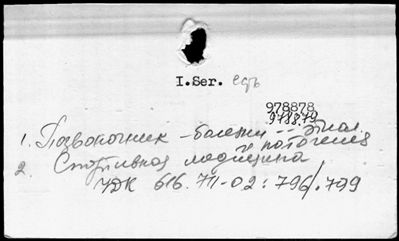 I.Ser. есть
978878
978879
1. Позвоночник - болезни -- Этиол.
и патогенез
2. Спортивная медицина
УДК 616.711-02:796/.799